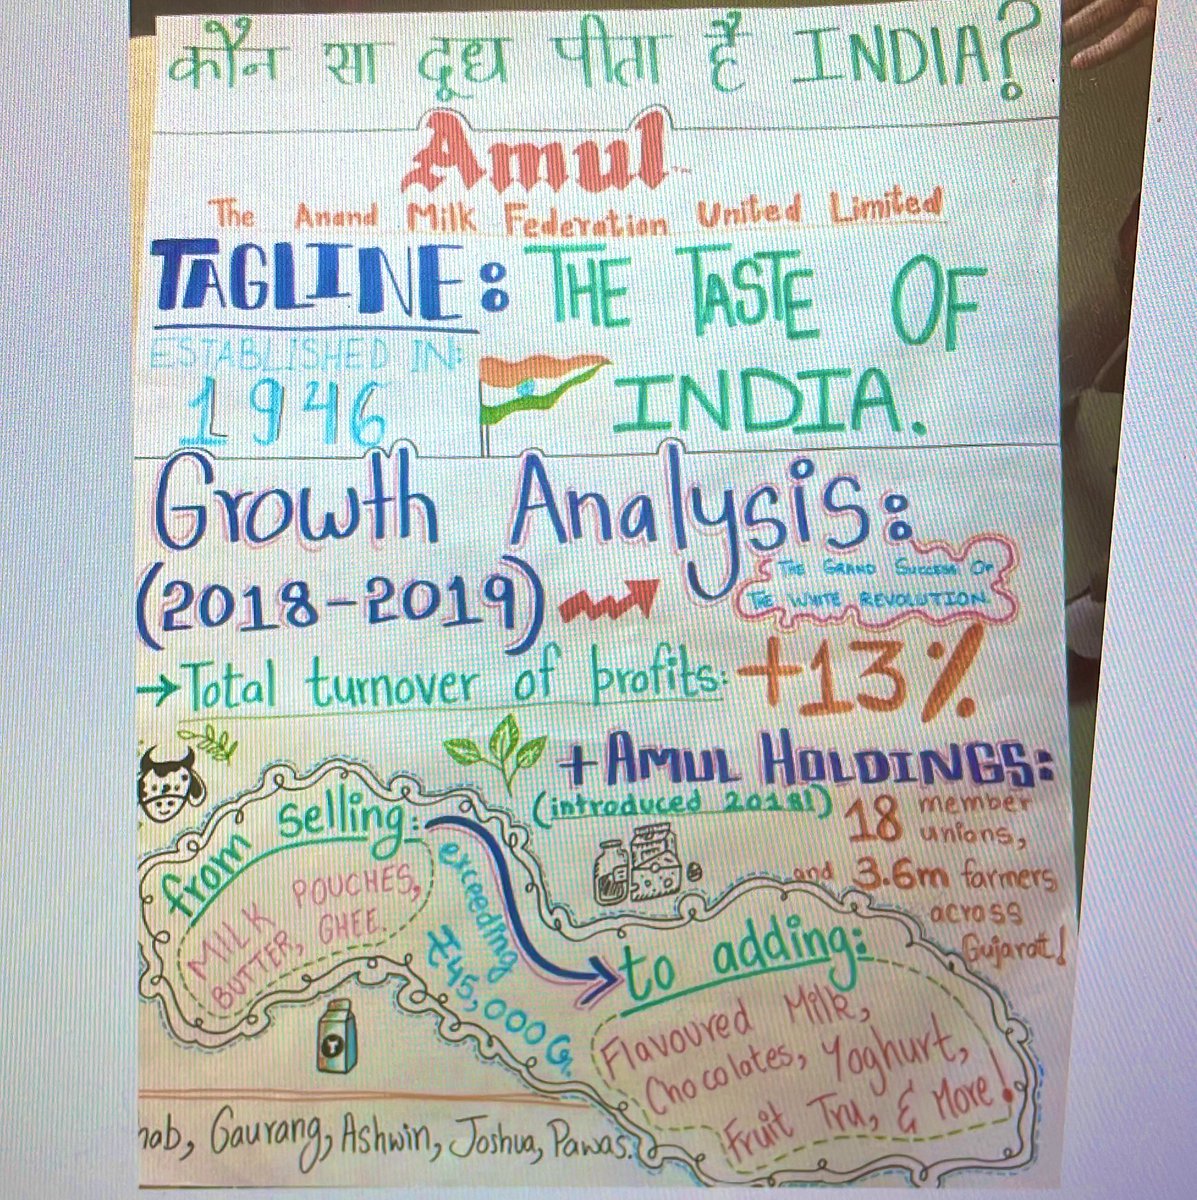 कौन सा दूध पीता है INDIA?
Amul
The Anand Milk Federation United Limited
TAGLINE: THE TASTE OF
INDIA.
ESTABLISHED IN:
1946
Growth Analysis:
(2018-2019)
THE GRAND SUCCESS OF
THE WHITE REVOLUTION
→Total turnover of profits: +13%
+AMUL HOLDINGS:
(introduced 2018!) 18 member
unions,
and 3.6m farmers
across
Gujarat!
from selling:
MILK POUCHES,
BUTTER, GHEE.
exceeding
₹45,000 Cr.
to adding:
Flavoured Milk,
Chocolates, Yoghurt,
Fruit Tru, & More!
Gaurang, Ashwin, Joshua, Pawas.